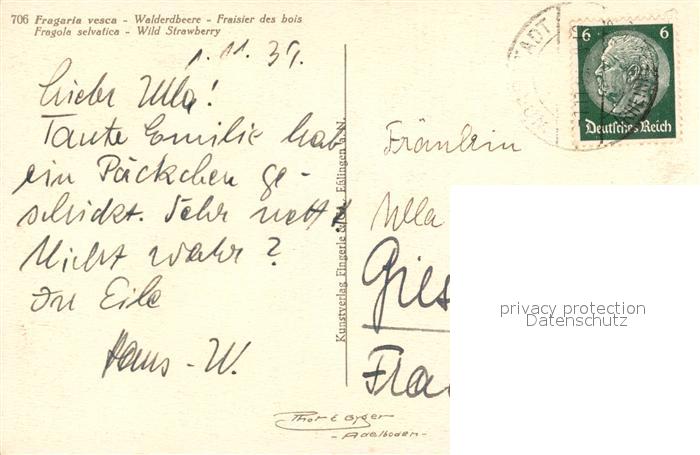 706 Fragaria vesca - Walderdbeere - Fraisier des bois
Fragola selvatica - Wild Strawberry
1.11.39.
Liebe Ulla!
Tante Emilie hat
ein Päckchen ge-
schickt. Sehr nett!
Nicht wahr?
In Eile
Hans-W.
Kunstverlag Fingerle Eßlingen a. N.
Fräulein
Ulla
Gies
Fra
6 6
Deutsches Reich
privacy protection
Datenschutz
Phot E Gyger
- Adelboden -